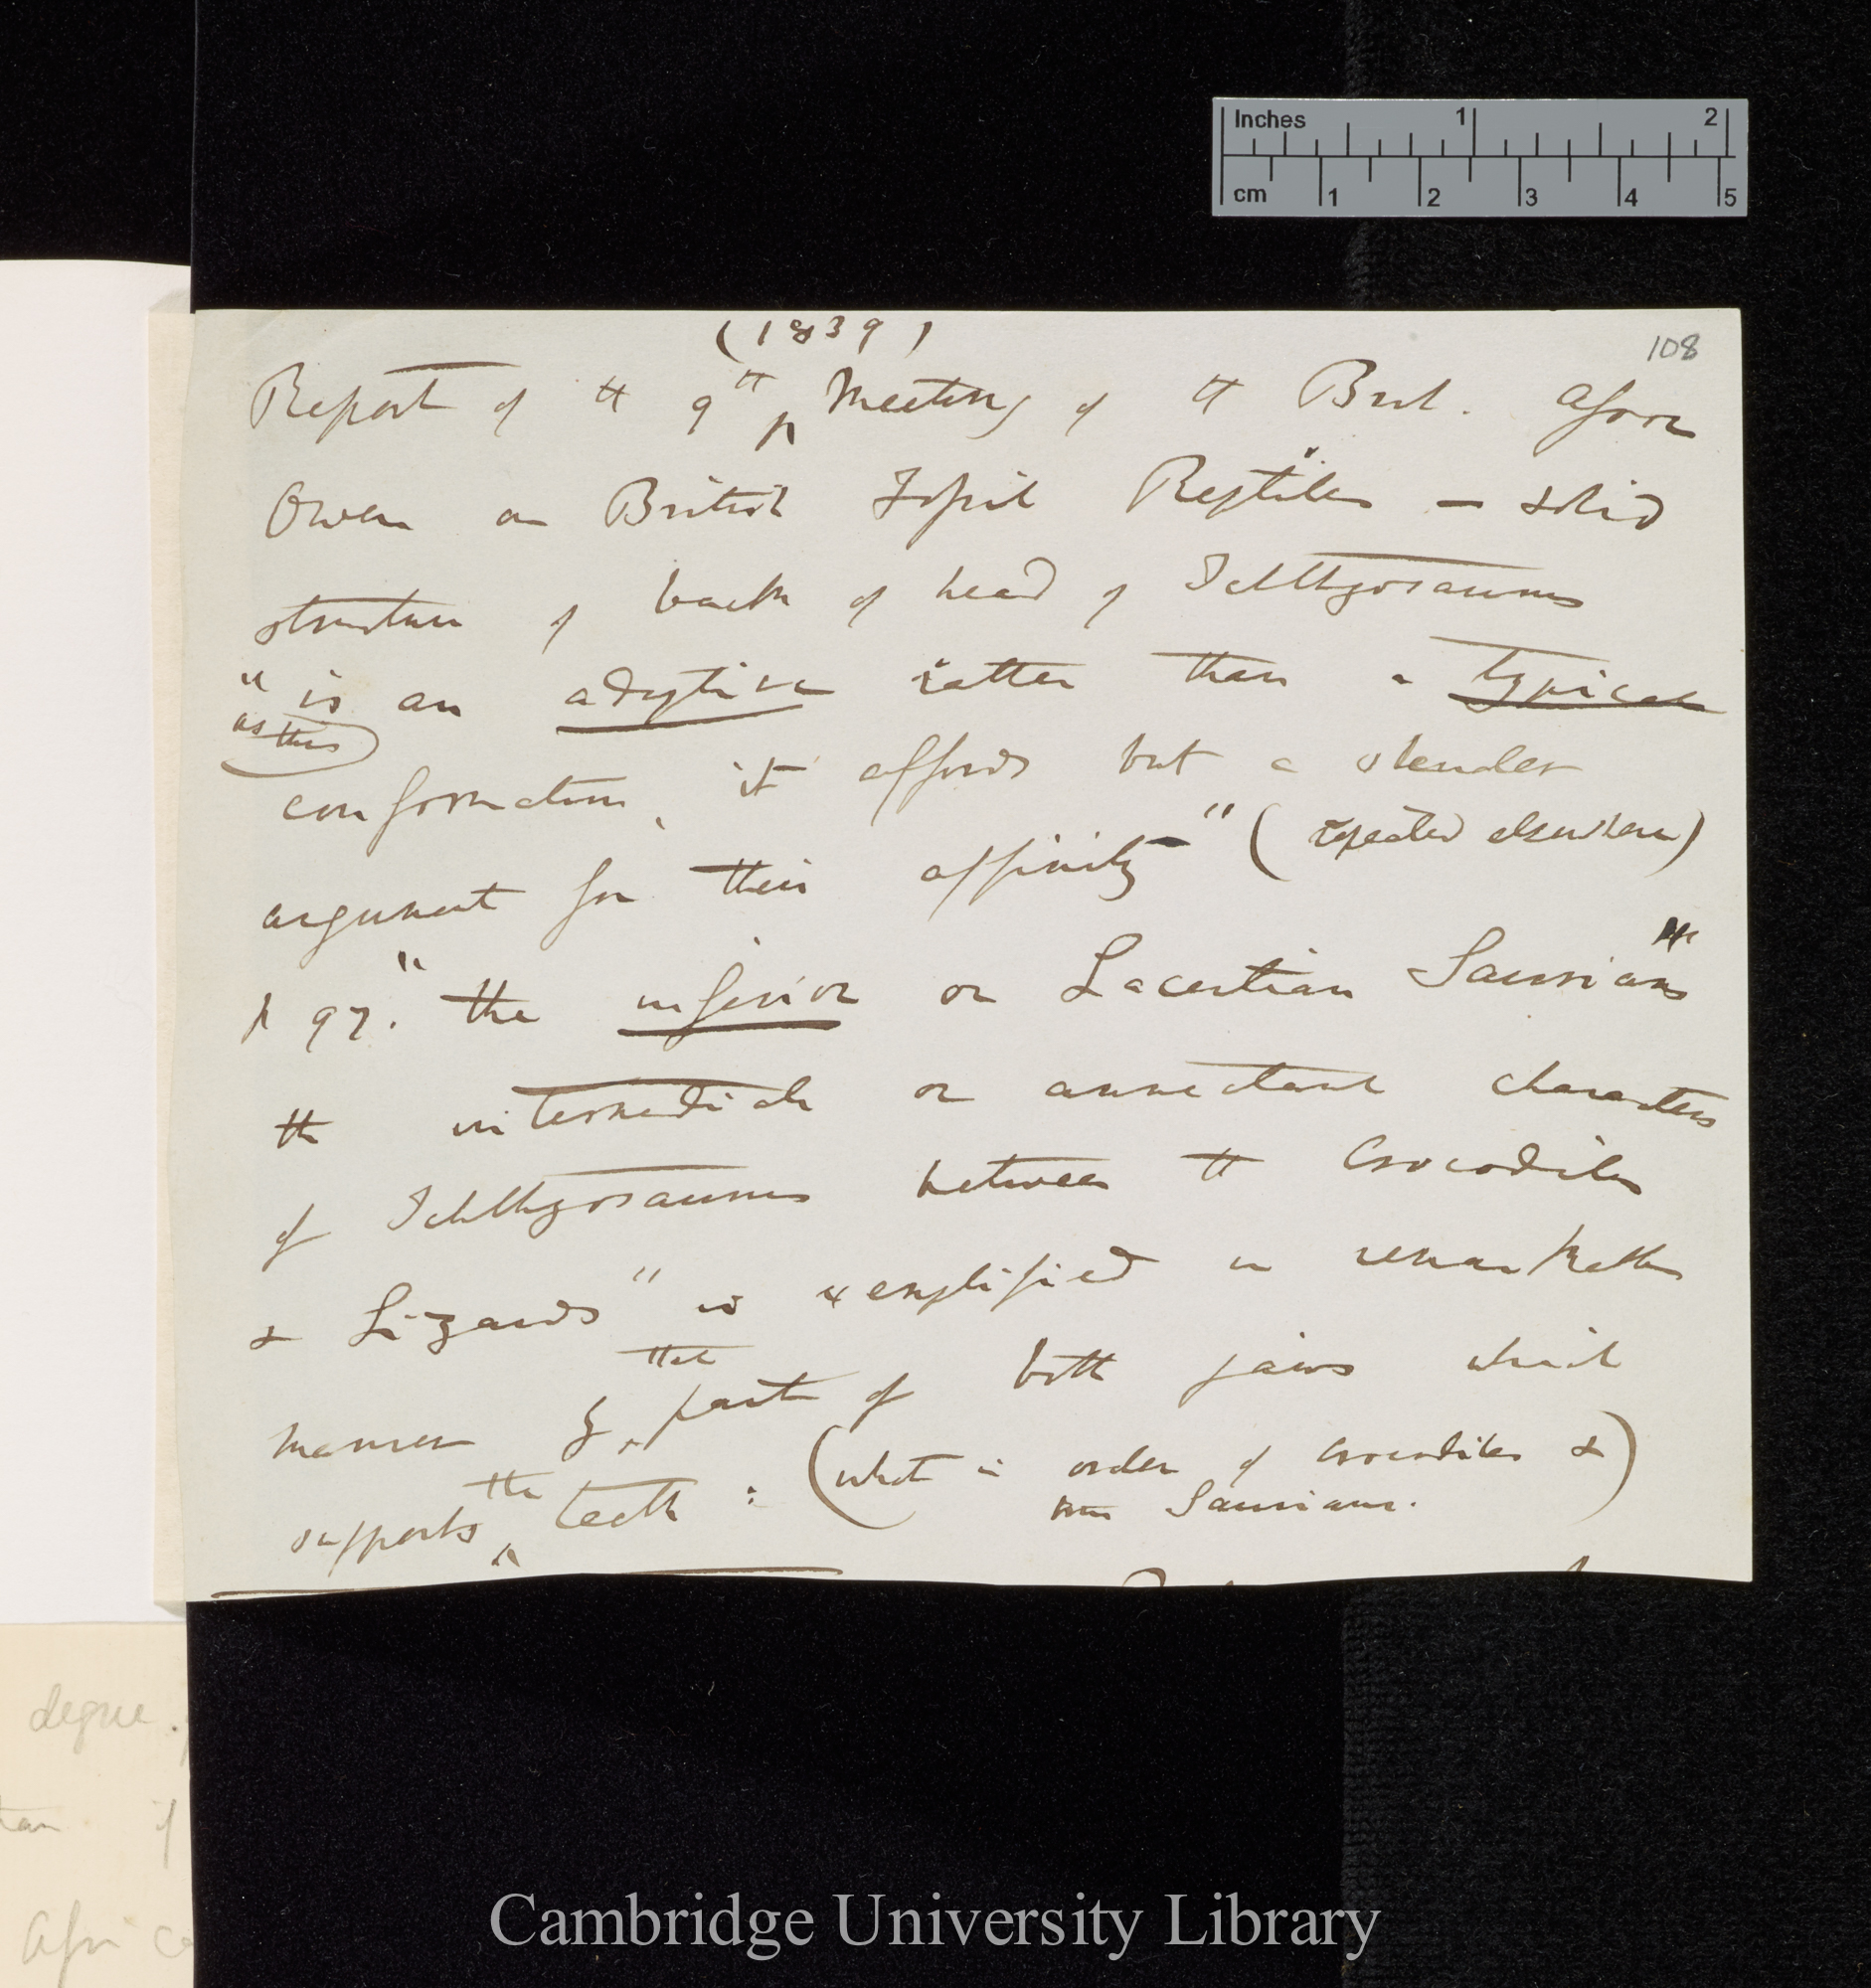 Inches 1 2
cm 1 2 3 4 5
108
(1839)
Report of the 9th Meeting of the Brit. Assoc
Owen on British Fossil Reptiles — solid
structure of back of head of Ichthyosaurus
"is an adaptive rather than a typical
as this
conformation, it affords but a slender
argument for their affinity—" (repeated elsewhere)
p 97. "the inferior or Lacertian Saurians"
the intermediate or annectant characters
of Ichthyosaurus between the Crocodiles
& Lizards" is exemplified in remarkable
that
manner by part of both jaws which
the
supports teeth: (what is order of crocodiles &
Saurians.)
degree.
of
Africa
Cambridge University Library